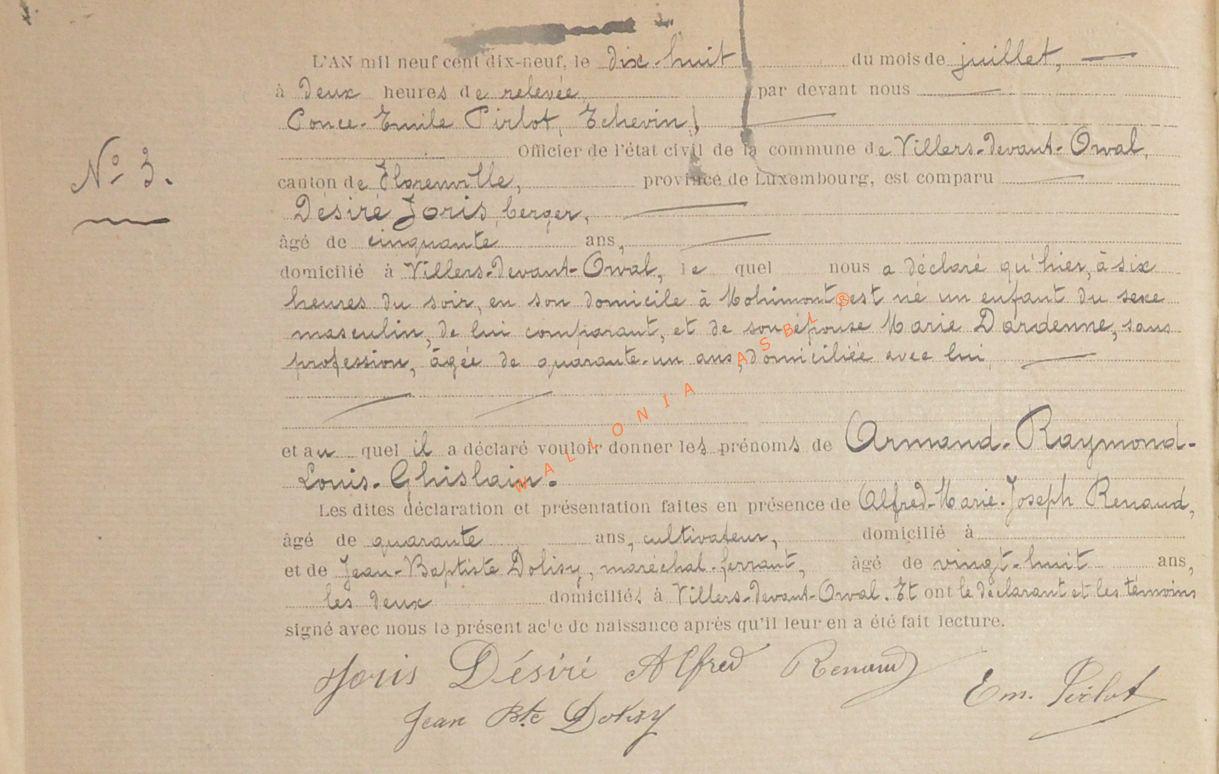 L'AN mil neuf cent dix-neuf, le dix-huit du mois de juillet,
à deux heures de relevée par devant nous
Ponce-Emile Pirlot, Echevin,
Officier de l'état civil de la commune de Villers-devant-Orval,
N° 3.
canton de Florenville, province de Luxembourg, est comparu
Désiré Joris, berger,
âgé de cinquante ans,
domicilié à Villers-devant-Orval, le quel nous a déclaré qu'hier, à six
heures du soir, en son domicile à Mohimont, est né un enfant du sexe
masculin, de lui comparant, et de son épouse Marie Dardenne, sans
profession, âgée de quarante-un ans, domiciliée avec lui,
et au quel il a déclaré vouloir donner les prénoms de Armand-Raymond-
Louis-Ghislain.
WALLONIA ASBL ®
Les dites déclaration et présentation faites en présence de Alfred-Marie-Joseph Renaud,
âgé de quarante ans, cultivateur, domicilié à
et de Jean-Baptiste Dolisy, maréchal-ferrant, âgé de vingt-huit ans,
les deux domiciliés à Villers-devant-Orval. Et ont le déclarant et les témoins
signé avec nous le présent acte de naissance après qu'il leur en a été fait lecture.
Joris Désiré Alfred Renaud Em. Pirlot
Jean Bte Dolisy